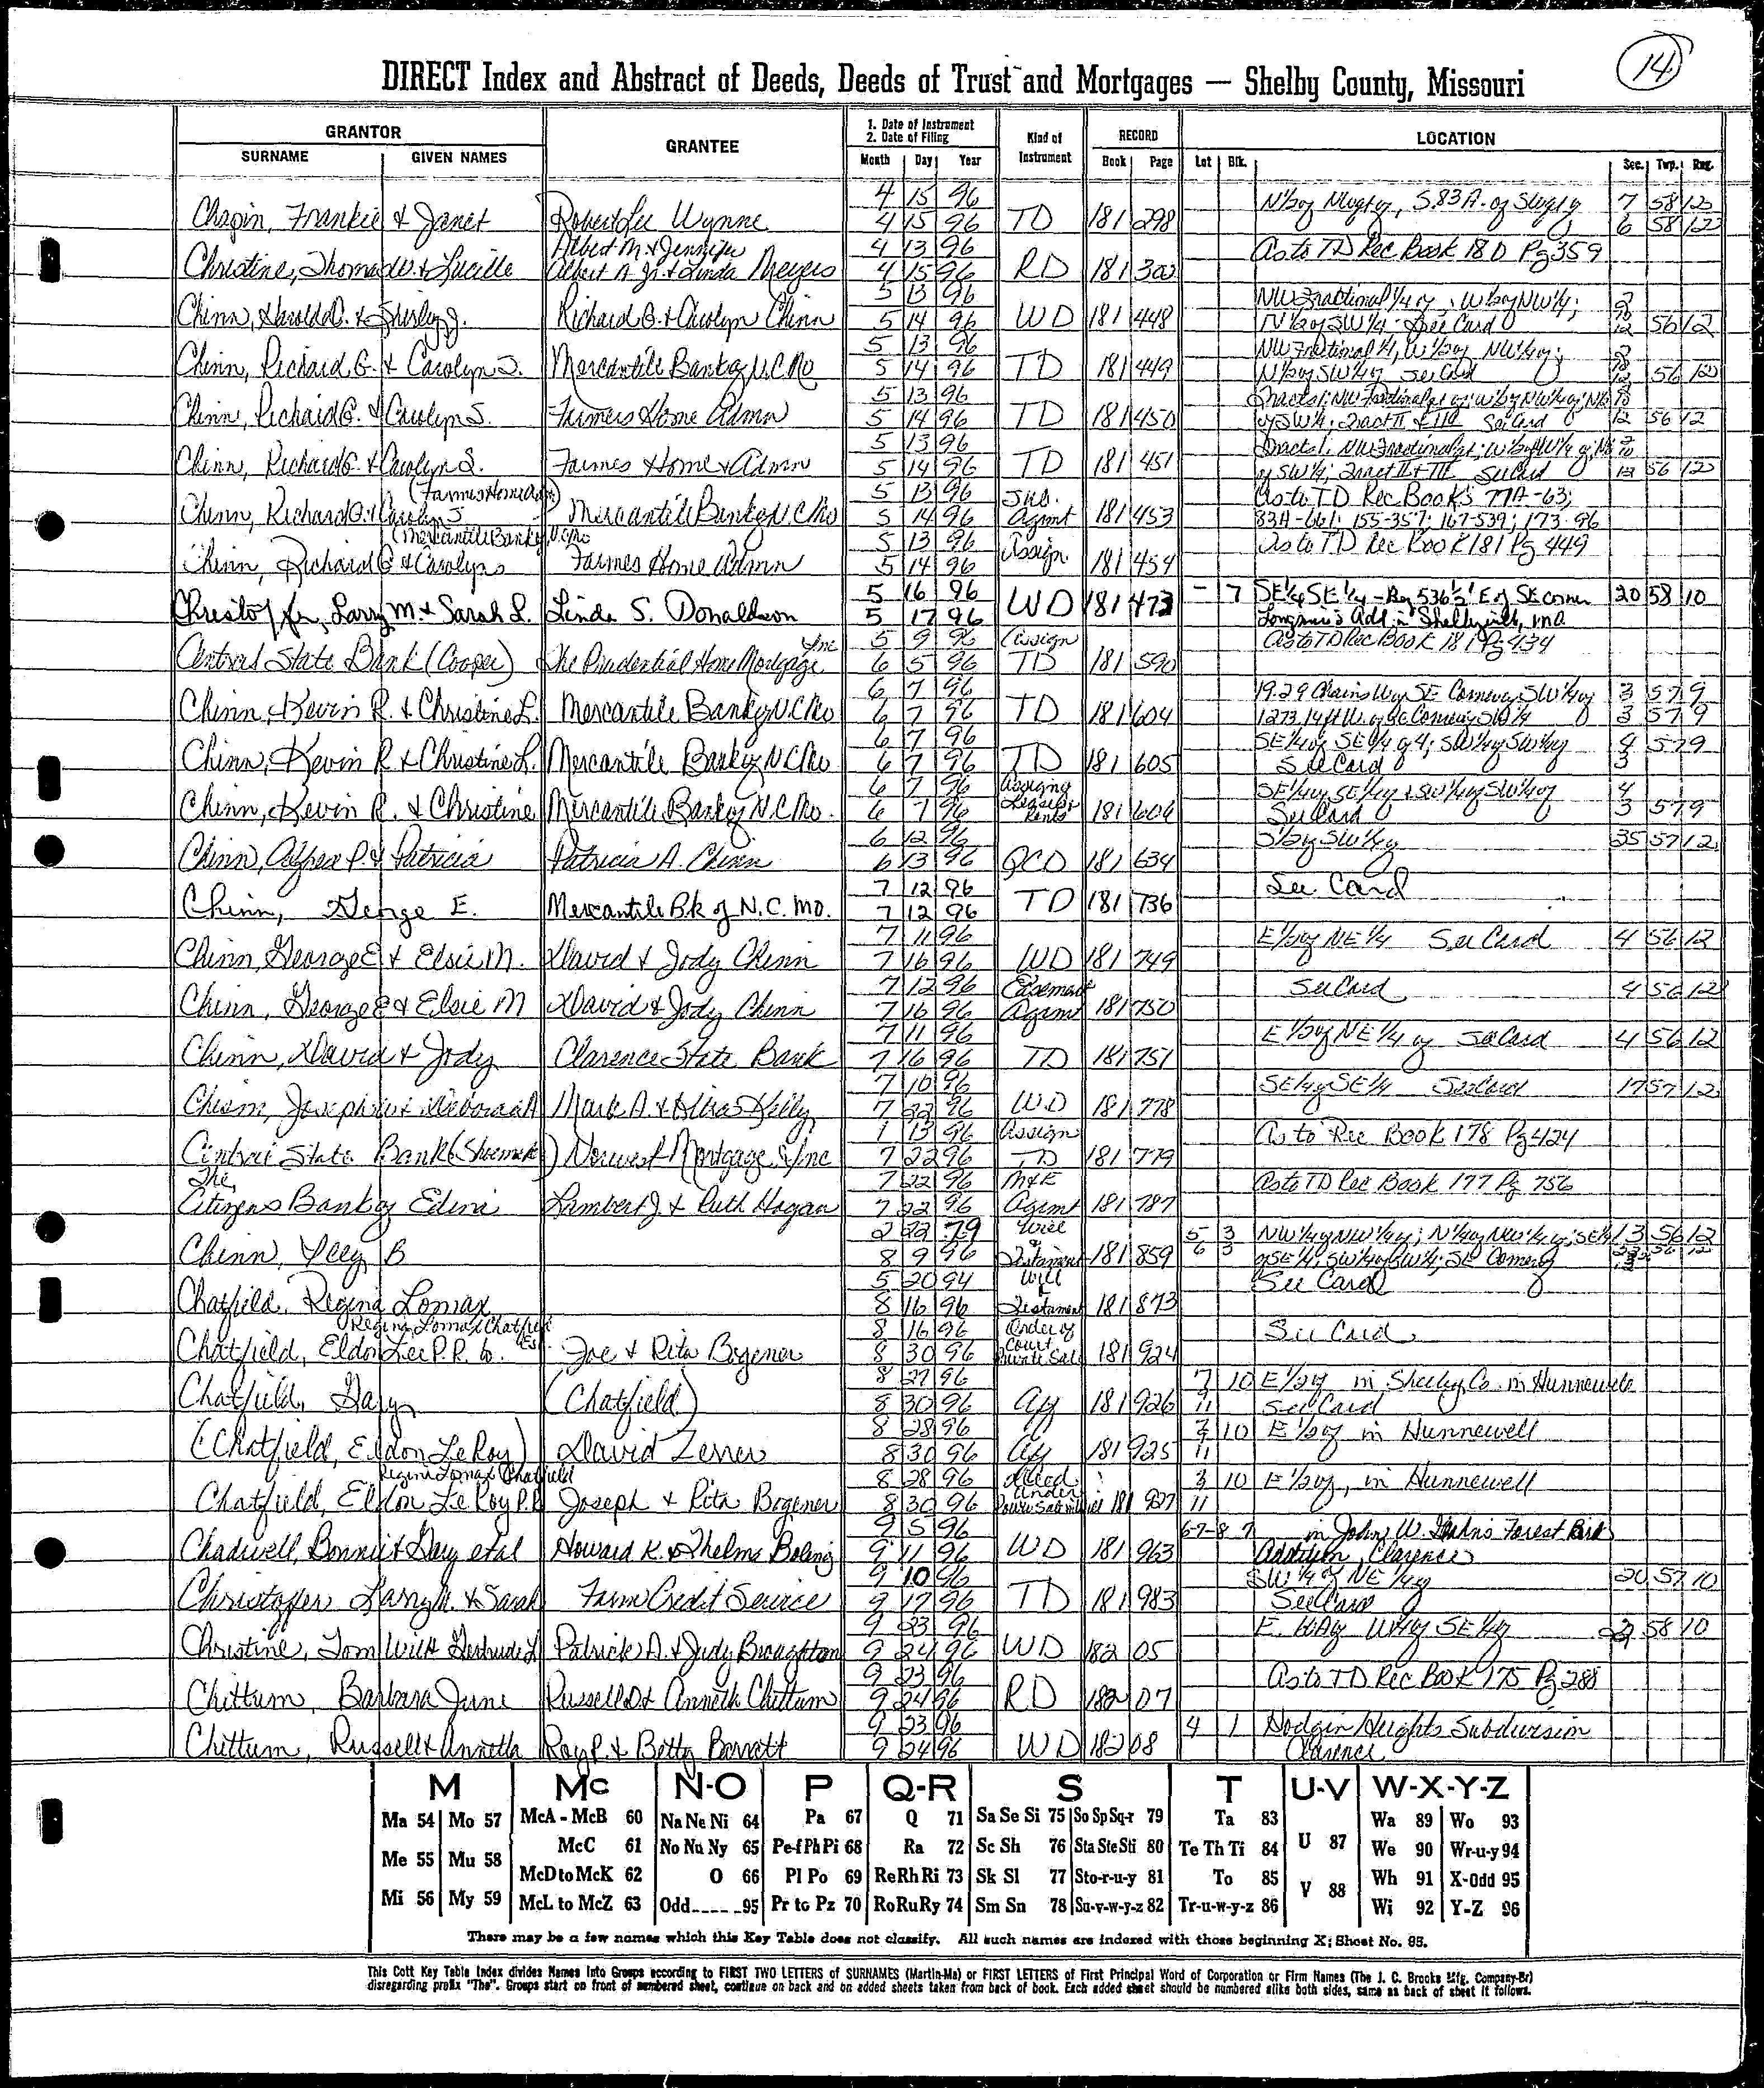 14
DIRECT Index and Abstract of Deeds, Deeds of Trust and Mortgages — Shelby County, Missouri
GRANTOR GRANTEE 1. Date of Instrument 2. Date of Filing Kind of Instrument RECORD LOCATION
SURNAME GIVEN NAMES Month Day Year Book Page Lot Blk. Sec. Twp. Rng.
4 15 96 7 58 12
Chapin, Frankie & Janet Robert Lee Wynne 4 15 96 TD 181 298 6 58 12
Albert M. & Jennifer 4 13 96 As to TD Rec Book 180 Pg 359
Christine, Thomas W. & Lucille Albert A Jr. & Linda Meyers 4 15 96 RD 181 302
5 13 96 NW Fractional 1/4 of ; W 1/2 of NW 1/4;
Chinn, Harold C. & Shirley J. Richard G. & Carolyn Chinn 5 14 96 WD 181 448 N 1/2 of SW 1/4 See Card 12 56 12
5 13 96 NW Fractional 1/4, W 1/2 of NW 1/4 of;
Chinn, Richard G. & Carolyn S. Mercantile Bank of N.C. Mo 5 14 96 TD 181 449 N 1/2 of SW 1/4 of See Card 12 56 12
5 13 96
Chinn, Richard G. & Carolyn S. Farmers Home Admn 5 14 96 TD 181 450 of SW 1/4; Tract II & III See Card 12 56 12
5 13 96
Chinn, Richard G. & Carolyn S. Farmers Home Admn 5 14 96 TD 181 451 of SW 1/4; Tract II & III See Card 12 56 12
(Farmers Home Adm) 5 13 96 Sub. As to TD Rec Books 77A-63;
Chinn, Richard G. & Carolyn S Mercantile Bank of N.C. Mo 5 14 96 Agmt 181 453 83A-661; 155-357; 167-539; 173-96
(Mercantile Bank of N.C. Mo 5 13 96 Assign As to TD Rec Book 181 Pg 449
Chinn, Richard G & Carolyn S Farmers Home Admn 5 14 96 181 454
5 16 96 - 7 SE 1/4 SE 1/4 - Bg 536 1/2' E of SE corner 20 58 10
Christofer, Larry M. & Sarah L. Linda S. Donaldson 5 17 96 WD 181 473 Add. in Shelbyville, Mo.
Inc 5 9 96 Assign As to TD Rec Book 181 Pg 434
Central State Bank (Cooper) The Prudential Home Mortgage 6 5 96 TD 181 590
6 7 96 19.29 Chains W of SE Corner of SW 1/4 of 3 57 9
Chinn, Kevin R. & Christine L. Mercantile Bank of N.C. Mo 6 7 96 TD 181 604 1273.14 ft W. of SE Corner of SW 1/4 3 57 9
6 7 96 SE 1/4 of SE 1/4 of 4; SW 1/4 of SW 1/4 of 4 57 9
Chinn, Kevin R & Christine L. Mercantile Bank of N.C. Mo 6 7 96 TD 181 605 See Card 3
6 7 96 Assign of SE 1/4 of SE 1/4 of & SW 1/4 of SW 1/4 of 4
Chinn, Kevin R. & Christine Mercantile Bank of N.C. Mo. 6 7 96 Leases & Rents 181 606 See Card 3 57 9
6 12 96 S 1/2 of SW 1/4 of 35 57 12
Chinn, Alfred P. & Patricia Patricia A. Chinn 6 13 96 QCD 181 634
7 12 96 See Card
Chinn, George E. Mercantile Bk of N.C. Mo. 7 12 96 TD 181 736
7 11 96 E 1/2 of NE 1/4 See Card 4 56 12
Chinn, George E & Elsie M. David & Jody Chinn 7 16 96 WD 181 749
7 12 96 Easement See Card 4 56 12
Chinn, George E & Elsie M David & Jody Chinn 7 16 96 Agmt 181 750
7 11 96 E 1/2 of NE 1/4 of See Card 4 56 12
Chinn, David & Jody Clarence State Bank 7 16 96 TD 181 751
7 10 96 SE 1/4 of SE 1/4 See Card 17 57 12
Chism, Joseph W & Deborah Mark A. & Kelly 7 22 96 WD 181 778
1 15 96 Assign As to Rec Book 178 Pg 424
Central State Bank (Shoemake) Norwest Mortgage Inc 7 22 96 TD 181 779
The 7 22 96 M&E As to TD Rec Book 177 Pg 756
Citizens Bank of Edina Lambert J. & Ruth Hagan 7 22 96 Agmt 181 787
2 22 79 Will & 5 3 NW 1/4 of NW 1/4; 13 56 12
Chinn, B 8 9 96 Testament 181 859 6 3 of SE 1/4; SW 1/4 of SW 1/4; SE Corner of
5 20 94 Will See Card
Chatfield, Regina Lomax 8 16 96 Testament 181 873
Regina Lomax Chatfield Est. 8 16 96 Order of Court See Card
Chatfield, Eldon Lee P.R. to. Joe & Rita Bogener 8 30 96 Private Sale 181 924
8 27 96 7 10 E 1/2 of in Shelby Co. in Hunnewell
Chatfield, Gary (Chatfield) 8 30 96 Aff 181 926 11 See Card
8 28 96 7 10 E 1/2 of in Hunnewell
(Chatfield, Eldon LeRoy) David Zerrer 8 30 96 Aff 181 925 11
Regina Lomax Chatfield 8 28 96 Deed Under 3 10 E 1/2 of, in Hunnewell
Chatfield, Eldon LeRoy P.R Joseph & Rita Bogener 8 30 96 181 927 11
9 5 96 6-7-8 7 in John W. Forest Park
Chadwell, Bonnie & Gary etal Howard K. & Thelma 9 11 96 WD 181 963 Addition, Clarence
9 10 96 SW 1/4 of NE 1/4 of 20 57 10
Christopfer Larry M. & Sarah Farm Credit Service 9 17 96 TD 181 983 See Card
9 23 96 58 10
Christine, Tom Will & Gertrude L Patrick A. & Judy Broughton 9 24 96 WD 182 05
9 23 96 As to TD Rec Book 175 Pg 288
Chittum, Barbara June Russell D & Anneth Chittum 9 24 96 RD 182 07
9 23 96 4 1 Hodgin Heights Subdivision
Chittum, Russell & Annetta Roy P. & Betty Barrett 9 24 96 WD 182 08 Clarence
M Mc N-O P Q-R S T U-V W-X-Y-Z
Ma 54 Mo 57 McA - McB 60 Na Ne Ni 64 Pa 67 Q 71 Sa Se Si 75 So Sp Sq-r 79 Ta 83 Wa 89 Wo 93
McC 61 No Nu Ny 65 Pe-f Ph Pi 68 Ra 72 Sc Sh 76 Sta Ste Sti 80 Te Th Ti 84 U 87 We 90 Wr-u-y 94
Me 55 Mu 58 McD to McK 62 O 66 Pl Po 69 Re Rh Ri 73 Sk Sl 77 Sto-r-u-y 81 To 85 V 88 Wh 91 X-Odd 95
Mi 56 My 59 McL to McZ 63 Odd-----95 Pr to Pz 70 Ro Ru Ry 74 Sm Sn 78 Su-v-w-y-z 82 Tr-u-w-y-z 86 Wi 92 Y-Z 96
There may be a few names which this Key Table does not classify. All such names are indexed with those beginning X; Sheet No. 95.
This Cott Key Table Index divides Names Into Groups according to FIRST TWO LETTERS of SURNAMES (Martin-Ma) or FIRST LETTERS of First Principal Word of Corporation or Firm Names (The J. C. Brooks Mfg. Company-Br)
disregarding prefix "The". Groups start on front of numbered sheet, continue on back and on added sheets taken from back of book. Each added sheet should be numbered alike both sides, same as back of sheet it follows.